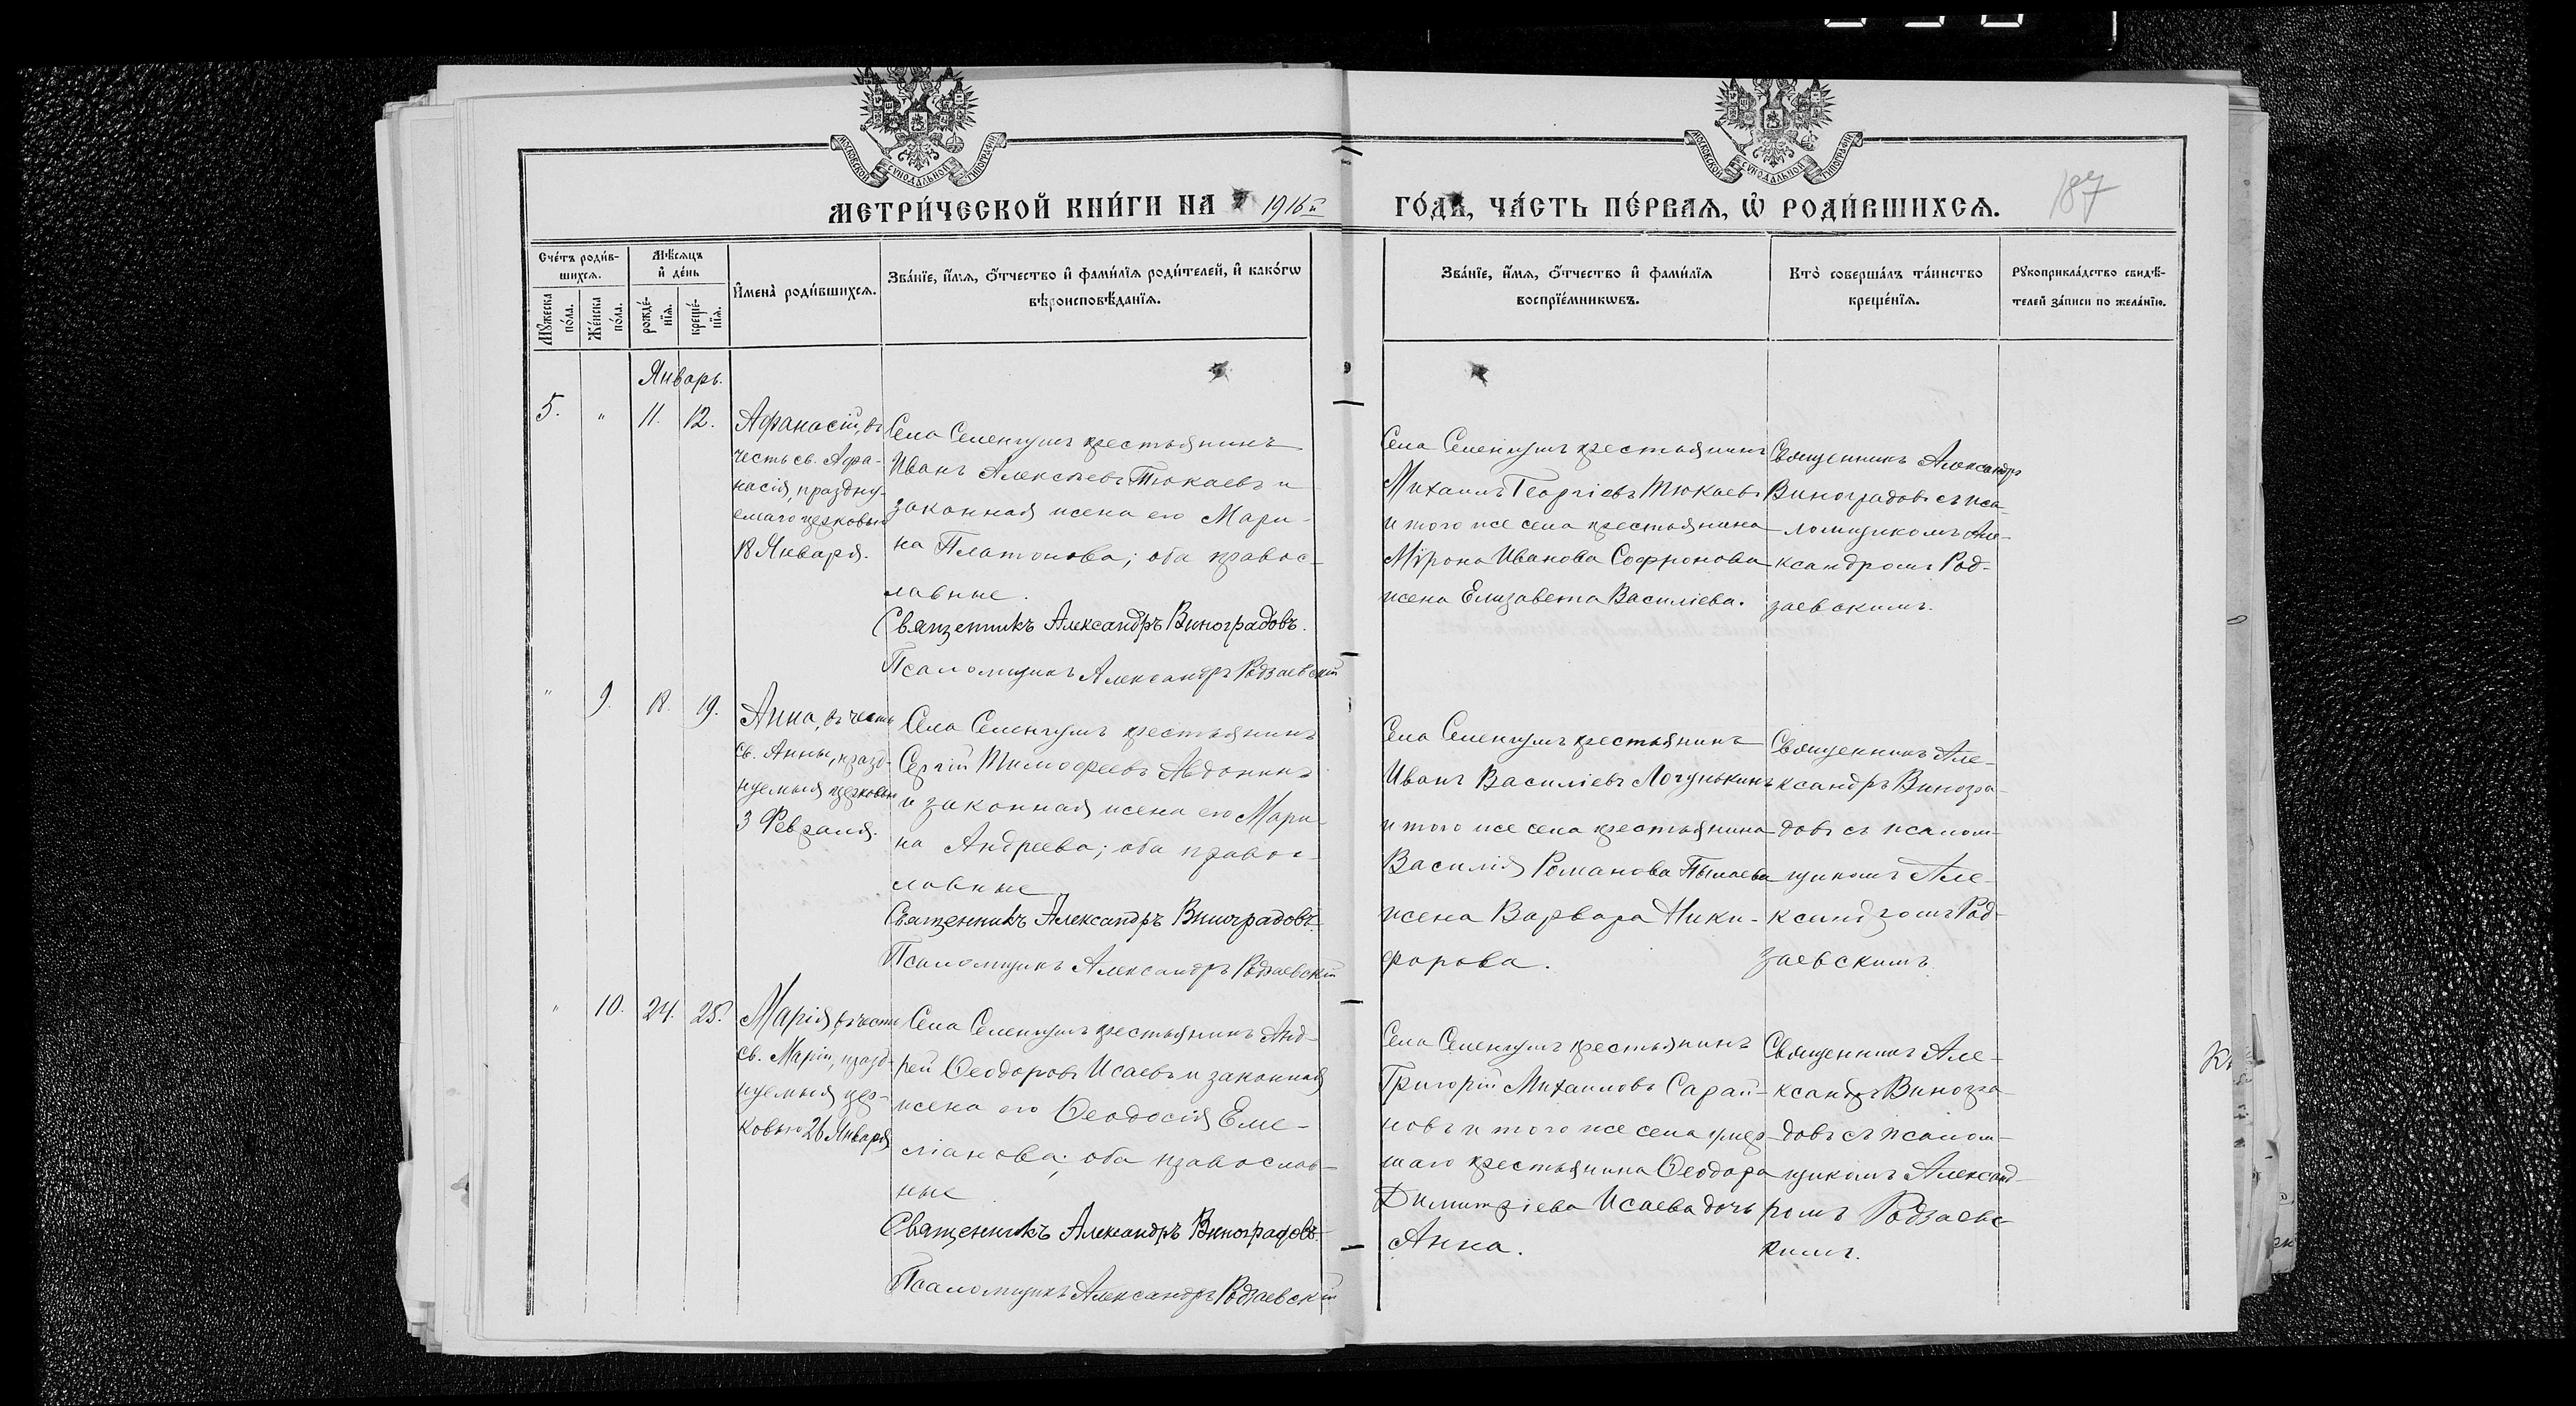 МОСКОВСКОЙ СѴНОДАЛЬНОЙ ТИПОГРАФІИ
МОСКОВСКОЙ СѴНОДАЛЬНОЙ ТИПОГРАФІИ
МЕТРИ́ЧЕСКОЙ КНИ́ГИ НА 1916й ГО́ДЪ, ЧА́СТЬ ПЕ́РВАѦ, Ѡ҆ РОДИ́ВШИХСѦ.
187
Сче́тъ роди́в-
шихсѧ.
Мѣ́сѧцъ
и҆ де́нь
Мꙋ́жеска
по́ла.
Же́нска
по́ла.
рожде́-
нїѧ.
креще́-
нїѧ.
И҆мена̀ роди́вшихсѧ.
Зва́нїе, и҆́мѧ, ѻ҆́тчество и҆ фами́лїѧ роди́телей, и҆ како́гѡ
вѣроисповѣ́данїѧ.
Зва́нїе, и҆́мѧ, ѻ҆́тчество и҆ фами́лїѧ
воспрїе́мникѡвъ.
Кто̀ соверша́лъ та́инство
креще́нїѧ.
Рꙋкоприкла́дство свидѣ́-
телей за́писи по жела́нїю.
Январь.
5. " 11. 12.
Афанасій, въ
честь св. Афа-
насія, праздну-
емаго церковью
18 Января.
Села Селенгушъ крестьянинъ
Иванъ Алексѣевъ Тюкаевъ и
законная жена его Мари-
на Платонова; оба правос-
лавные.
Священникъ Александръ Виноградовъ.
Псаломщикъ Александръ Родзаевскій
Села Селенгушъ крестьянинъ
Михаилъ Георгіевъ Тюкаевъ
и того же села крестьянина
Мѵрона Иванова Софронова
жена Елизавета Василіева.
Священникъ Александръ
Виноградовъ съ пса-
ломщикомъ Але-
ксандромъ Род-
заевскимъ.
" 9. 18. 19.
Анна, въ честь
св. Анны, празд-
нуемыя церковью
3 Февраля.
Села Селенгушъ крестьянинъ
Сергій Тимофеевъ Авдонинъ
и законная жена его Мари-
на Андреева; оба правос-
лавные
Священникъ Александръ Виноградовъ.
Псаломщикъ Александръ Родзаевскій
Села Селенгушъ крестьянинъ
Иванъ Василіевъ Логунькинъ
и того же села крестьянина
Василія Романова Пылаева
жена Варвара Ники-
форова.
Священникъ Але-
ксандръ Виногра-
довъ съ псалом-
щикомъ Але-
ксандромъ Род-
заевскимъ
" 10. 24. 25.
Марія, въ честь
св. Маріи, празд-
нуемыя цер-
ковью 26 Января
Села Селенгушъ крестьянинъ Анд-
рей Ѳеодоровъ Исаевъ и законная
жена его Ѳеодосія Еме-
ліанова; оба православ-
ные
Священникъ Александръ Виноградовъ.
Псаломщикъ Александръ Родзаевскій
Села Селенгушъ крестьянинъ
Григорій Михаиловъ Сарай-
новъ и того же села умер-
шаго крестьянина Ѳеодора
Димитріева Исаева дочь
Анна.
Священникъ Але-
ксандръ Виногра-
довъ съ псалом-
щикомъ Александ-
ромъ Родзаевс-
кимъ.